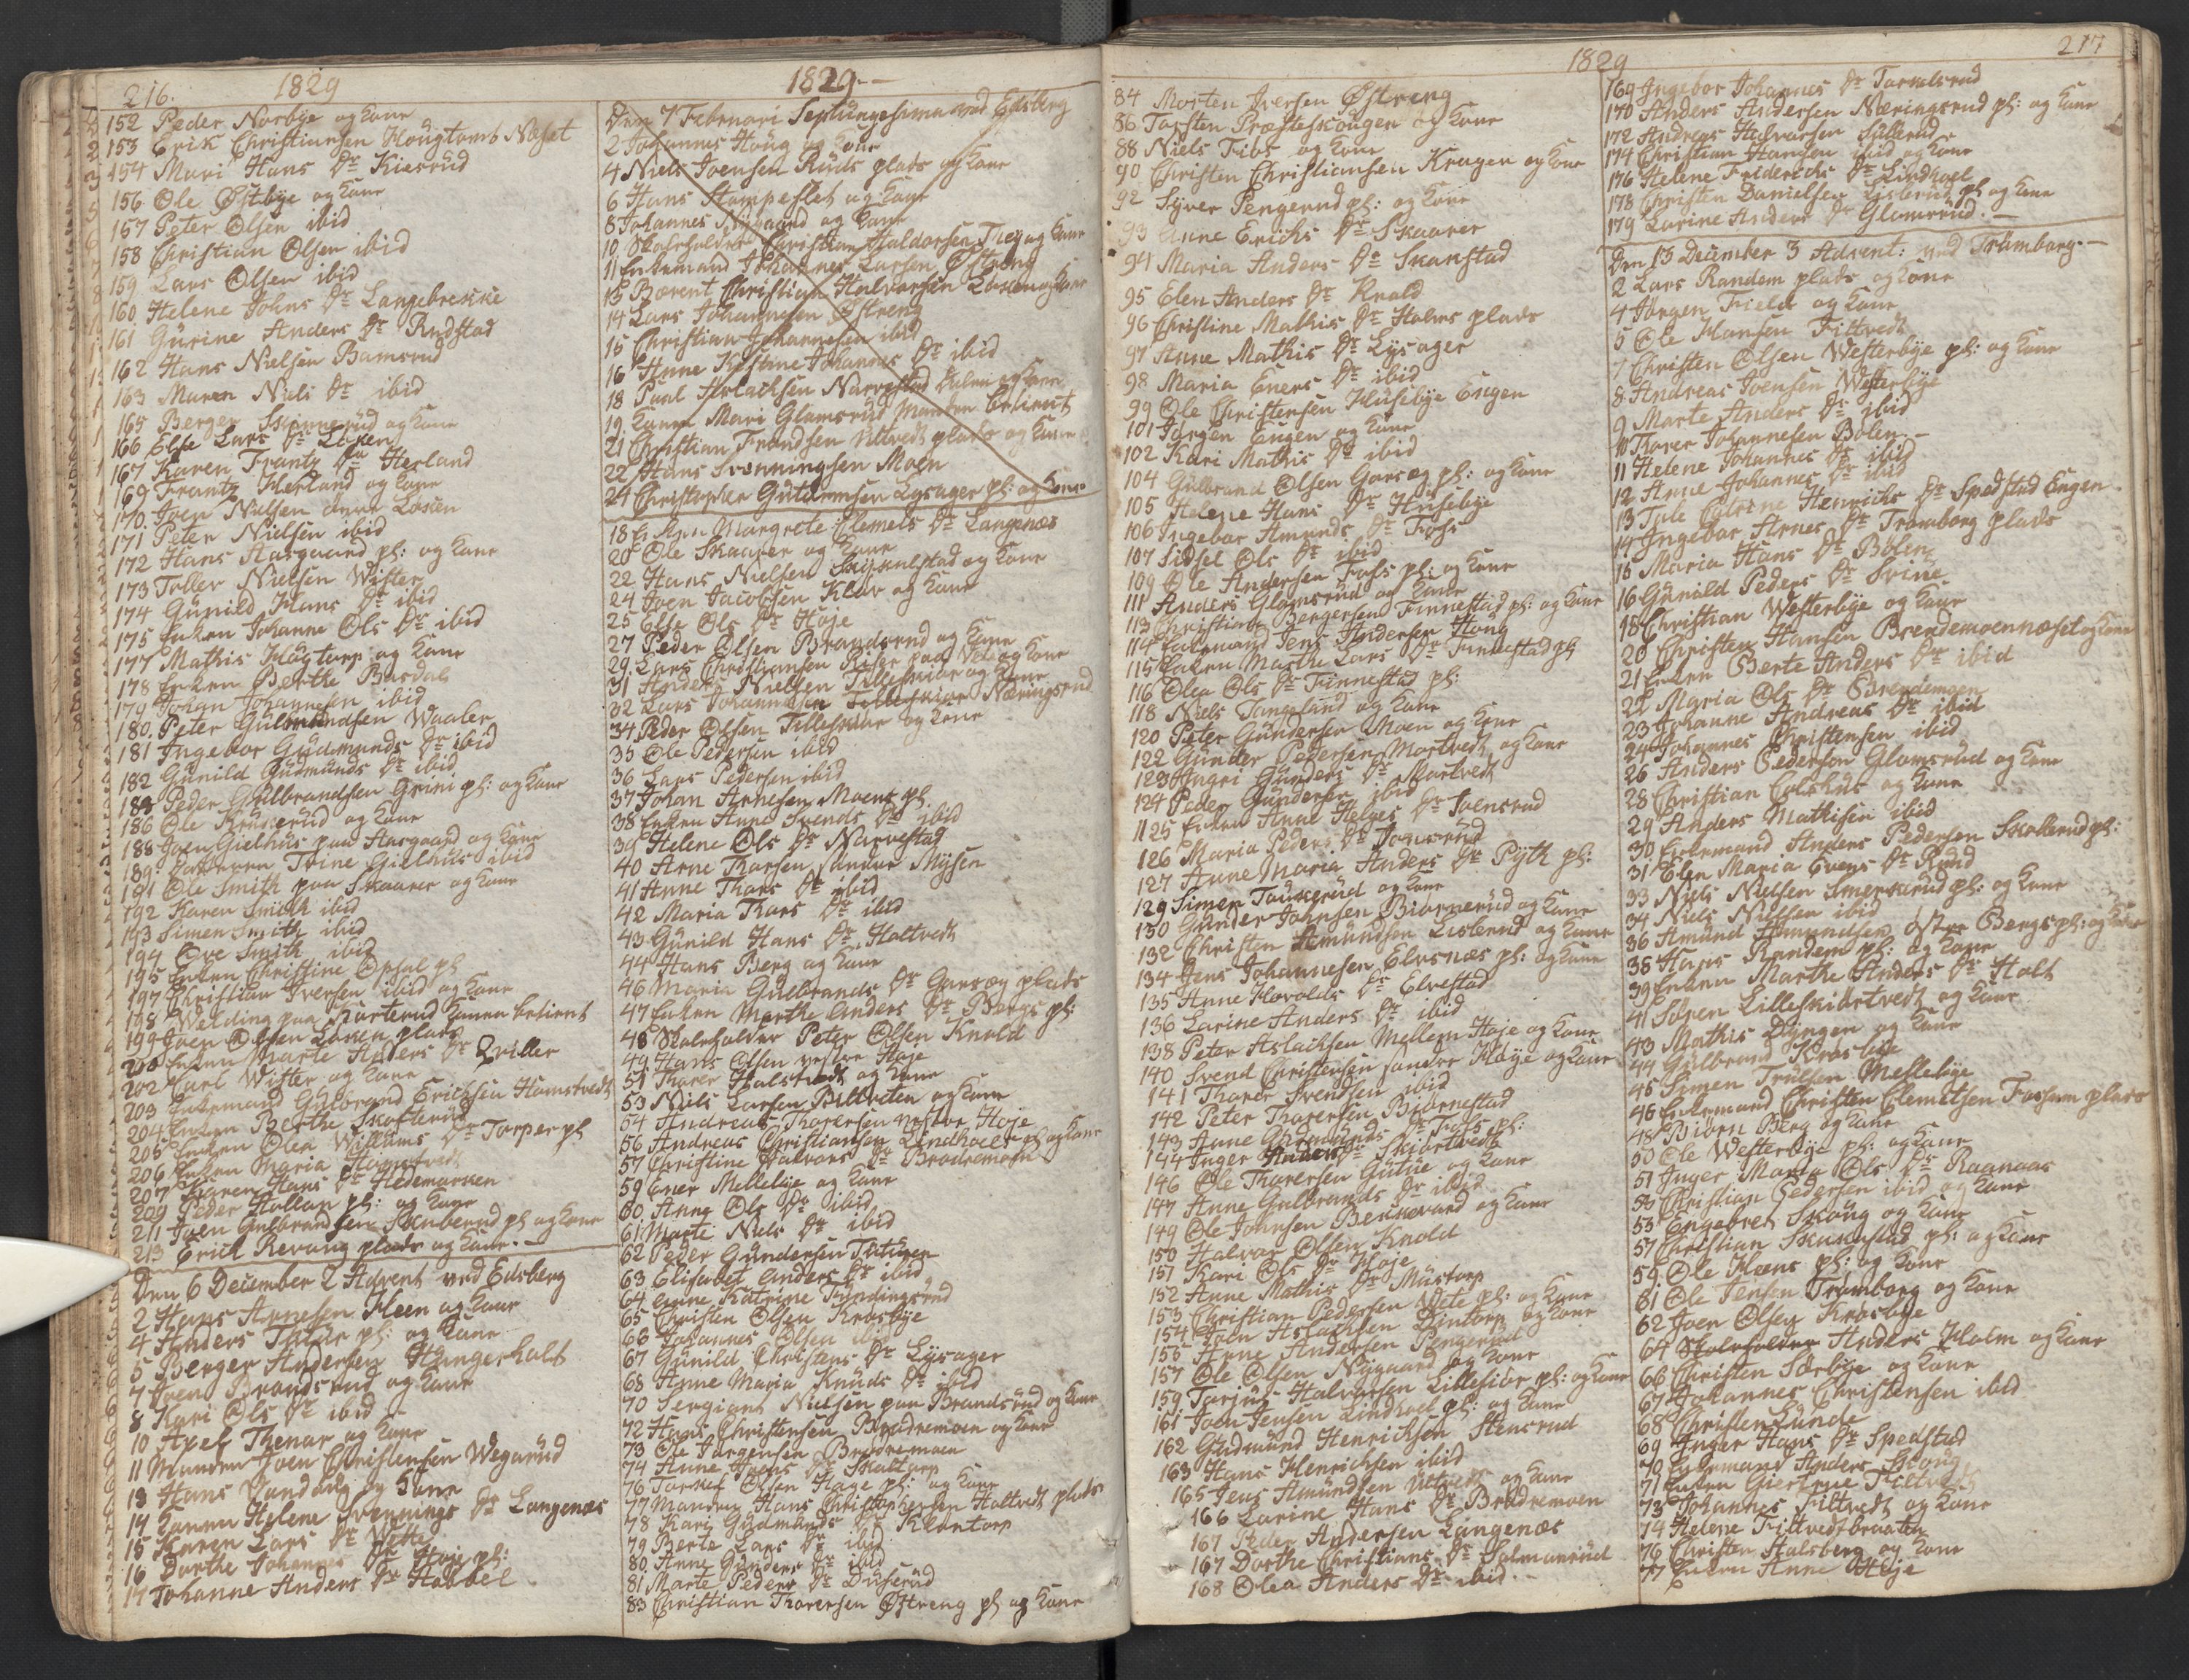 216.
1829
152 Peder Norbye og kone
153 Erik Christiansen Hougtomt Næset
154 Mari Hans Dr Kiesrud
156 Ole Østbye og kone
157 Peter Olsen ibid
158 Christian Olsen ibid
159 Lars Olsen ibid
160 Helene Johns Dr Langebrekke
161 Gurine Anders Dr Rudstad
162 Hans Nielsen Bamsrud
163 Maren Niels Dr ibid
165 Berger og kone
166 Else Lars Dr Løken
167 Karen Frantz Dr Herland
169 Frantz Herland og kone
170. Joen Nielsen Løken
171 Peter Nielsen ibid
172 Hans Aasgaard pl: og kone
173 Toller Nielsen Wister
174 Gunild Hans Dr ibid
175 Enken Johanne Ols Dr ibid
177 Mathis Hugtorp og kone
178 Enken Berthe Busdal
179 Johan Johannesen ibid
180. Peter Gulmundsen Waaler
181 Ingebor Gudmunds Dr ibid
182 Gunild Gudmunds Dr ibid
184 Peder Gulbrandsen Grini pl: og kone
186 Ole Kruserud og kone
188 Joen Gielhus paa Aasgaard og kone
189. Trine Gielhus ibid
191 Ole Smith paa Skaarer og kone
192 Karen Smith ibid
193 Simen Smith ibid
194 Ove Smith ibid
195 Enken Christine Opsal pl
197 Christian Iversen ibid og kone
198 Welding paa Karterud kanen betient
199 Joen Olsen Løken plads
200 Enken Marte Anders Dr Qviller
202 Carl Wister og kone
203 Enkemand Gulbrand Erichsen Homstvedt
204 Enken Berthe Skofterud
205 Enken Olea Willums Dr Torper pl
206 Enken Maria Homstvedt
207 Karen Hans Dr Hedemarken
209 Peder Hallan pl: og kone
211 Joen Gulbrandsen Skuberud pl og kone
213 Erich Revaug plads og kone.—
Den 6 December 2 Advent ved Edsberg
2 Hans Arnesen Heen og kone
4 Anders Tutur pl: og kone
5 Berger Andersen Hungerholt
7 Joen Brandsrud og kone
8 Kari Ols Dr ibid
10 Axel Thenar og kone
11 Manden Joen Christensen Wegarud
13 Hans og kone
14 Konen Helene Svennings Dr Langenæs
15 Karen Lars Dr Wister
16 Dorthe Johannes Dr Høie pl:
17 Johanne Anders Dr Habbel
1829.—
Den 7 Februari Septuagesima ved Edsberg
2 Johannes Houg og kone
4 Niels Joensen Ruds plads og kone
6 Hans Stampeslet og kone
8 Johannes Nygaard og kone
10 Skoleholder Christian Haldorsen Theg og kone
11 Enkemand Johannes Larsen Østreng
13 Bærent Christian Halvorsen Løken og kone
14 Lars Johannesen Østreng
15 Christian Johannesen ibid
16 Anne Kistine Johannes Dr ibid
18 Paul Aslachsen Narvestad og kone
19. Konen Mari Glomsrud Manden betient
21 Christian Frandsen Ultvedt plads og kone
22 Hans Svenningsen Moen
24 Christopher Gutormsen Lysager pl: og kone
18 Ann Margrete Clemets Dr Langenæs
20 Ole Skaarer og kone
22 Hans Nielsen Skiskulstad og kone
24 Joen Jacobsen Kløv og kone
25 Else Ols Dr Høje
27 Peder Olsen Brandsrud og kone
29 Lars Christiansen Riser paa Ve og kone
31 Anders Nielsen Tilleskiær og kone
32 Lars Johannesen Tilleskiær Næringsrud
34 Peder Olsen Tilleskiær og kone
35 Ole Pedersen ibid
36 Lars Pedersen ibid
37 Johan Arnesen Moens pl.
38 Enken Anne Svends Dr ibid
39 Helene Ols Dr Narvestad
40 Arne Thorsen søndre Mysen
41 Anne Thors Dr ibid
42 Maria Thors Dr ibid
43 Gunild Hans Dr Holtvedt
44 Hans Berg og kone
46 Maria Gulbrands Dr Garseg plads
47 Enken Marthe Anders Dr Bergs pl:
48 Skoleholder Peter Olsen Knold
49. Hans Olsen vestre Høje
51 Thorer Halstvedt og kone
53 Niels Larsen Biltviten og kone
54 Andreas Thorersen vestre Høje
56 Andreas Christiansen Lindhoel pl: og kone
57 Christine Halvors Dr Brødremoen
59 Ener Mellebye og kone
60 Anne Ols Dr ibid
61 Marte Niels Dr ibid
62 Peder Gundersen Tuturen
63 Elisabet Anders Dr ibid
64 Anne Katrine Fundingsrud
65 Christen Olsen Krosbye
66 Johannes Olsen ibid
67 Gunild Christens Dr Lysager
68 Anne Maria Knuds Dr ibid
70 Sergiant Nielsen paa Brandsrud og kone
72 Hans Christensen Brødremoen og kone
73 Ole Jørgensen Brødremoen
74 Anne Hans Dr Skoltorp
76 Torkel Olsen Hage pl: og kone
77 Manden Hans Christophersen Holtvedt plads
78 Kari Gudmunds Dr Klontorp
79 Berte Lars Dr ibid
80 Anne Gunders Dr ibid
81 Marte Peders Dr Duserud
83 Christian Thorersen Østreng pl og kone
1829
217
84 Morten Iversen Østreng
86 Torsten Præsteskougen og kone
88 Niels Fibs og kone
90 Christen Christiansen Kragen og kone
92 Syver Pengerud pl: og kone
93 Anne Erichs Dr Skaarer
94 Maria Anders Dr Skanstad
95 Elen Anders Dr Knold
96 Christine Mathis Dr Holms plads
97 Anne Mathis Dr Lysager
98 Maria Eners Dr ibid
99 Ole Christensen Husebye Engen
101 Jørgen Engen og kone
102 Kari Mathis Dr ibid
104 Gulbrand Olsen Garseg pl: og kone
105 Helene Hans Dr Husebye
106 Ingebor Amunds Dr Foss
107 Sidsel Ols Dr ibid
109 Ole Andersen Foss pl: og kone
111 Anders Glomsrud og kone
113 Christian Bergersen Finnestad pl: og kone
114 Enkemand Jens Andersen Houg
115 Enken Marthe Lars Dr Finnestad pl
116 Olea Ols Dr Finnestad pl:
118 Niels Tangeland og kone
120 Peter Gundersen Moen og kone
122 Gunder Pedersen Mortvedt og kone
123 Angri Gunders Dr Mortvedt
124 Peder Gundersen ibid
1125 Enken Anne Helges Dr Svensrud
126 Maria Peders Dr
127 Anne Maria Anders Dr Pyth pl:
129 Simen Taukerud og kone
130 Gunder Johnsen Biørnerud og kone
132 Christen Amundsen Lislerud og kone
134 Jens Johannesen Elvsnæs pl: og kone
135 Anne Horvolds Dr Elvestad
136 Larine Anders Dr ibid
138 Peter Aslachsen Mellem Høje og kone
140 Svend Christensen søndre Høye og kone
141 Thorer Svendsen ibid
142 Peter Thorersen Biørnestad
143 Anne Gudmunds Dr Foss pl:
144 Inger Anders Dr Skiørtvedt
146 Ole Thorersen Gutue og kone
147 Anne Gulbrands Dr ibid
149 Ole Johnsen Bekkevand og kone
150 Halvor Olsen Knold
151 Kari Ols Dr Høje
152 Anne Mathis Dr Mustorp
153 Christian Pedersen Wete pl: og kone
154 Joen Aslachsen Dintorp og kone
156 Anne Andersen Pengerud
157 Ole Olsen Nygaard og kone
159 Torjus Halvorsen Lillesior pl: og kone
161 Joen Jensen Lindhoel pl: og kone
162 Gudmund Henrichsen Stensrud
163 Hans Henrichsen ibid
165 Jens Amundsen Ultvedt og kone
166 Larine Hans Dr Brødremoen
167 Peder Andersen Langenæs
167 Dorthe Christians Dr Salmunrud
168 Olea Anders Dr ibid
169 Ingebor Johannes Dr Tormelsrud
170 Anders Andersen Næringsrud pl: og kone
172 Andreas Halvorsen Sullerud
174 Christian Hansen ibid og kone
176 Helene Friderichs Dr Lindhoel
178 Christen Danielsen Lislerud pl og kone
179 Larine Anders Dr Glomsrud.—
Den 13 December 3 Advent: ved Trømborg.—
2 Lars Randem plads og kone
4 Jørgen Field og kone
5 Ole Hansen Filtvedt
7 Christen Olsen Westerbye pl: og kone
8 Andreas Joensen Westerbye
9 Marte Anders Dr ibid
10 Thorer Johannesen Bølen.—
11 Helene Johannes Dr ibid
12 Anne Johannes Dr ibid
13 Tule Catrine Henrichs Dr Spedstad Engen
14 Ingebor Arnes Dr Trømborg plads
15 Maria Hans Dr Bølen
16 Gunild Peders Dr Svine
18 Christian Westerbye og kone
20 Christen Hansen Brendemoennæset og kone
21 Enken Berte Anders Dr ibid
22 Maria Ols Dr Brendemoen
23 Johanne Andreas Dr ibid
24 Johannes Christensen ibid
26 Anders Pedersen Glomsrud og kone
28 Christian Colshus og kone
29 Anders Mathisen ibid
30 Enkemand Anders Pedersen Skollerud pl:
31 Elen Maria Evens Dr Rund
33 Niels Nielsen Smerkerud pl: og kone
34 Niels Nielsen ibid
36 Amund Amundsen østre Bergs pl: og kone
38 Hans Randem pl: og kone
39 Enken Marthe Anders Dr Holt
41 Søren Lilleskiørtvedt og kone
43 Mathis Dyngen og kone
44 Gulbrand Krosbye
45 Simen Trulsen Mellebye
46 Enkemand Christen Clemetsen Fossum plads
48 Biørn Berg og kone
50 Ole Westerbye pl: og kone
51 Inger Maria Ols Dr Raanaas
53 Christian Pedersen ibid og kone
55 Engebret Skoug og kone
57 Christian Skukestad pl: og kone
59 Ole Heens pl: og kone
61 Ole Jensen Trømborg og kone
62 Joen Olsen Krosbye
64 Skoleholder Anders Holm og kone
66 Christen Sørbye og kone
67 Johannes Christensen ibid
68 Christen Lunde
69 Inger Hans Dr Spedstad
70 Enkemand Anders Skoug
71 Enken Giertrue Filtvedt
73 Johannes Filtvedt og kone
74 Helene Filtvedtbraaten
76 Christen Halsberg og kone
77 Enken Anne Helje